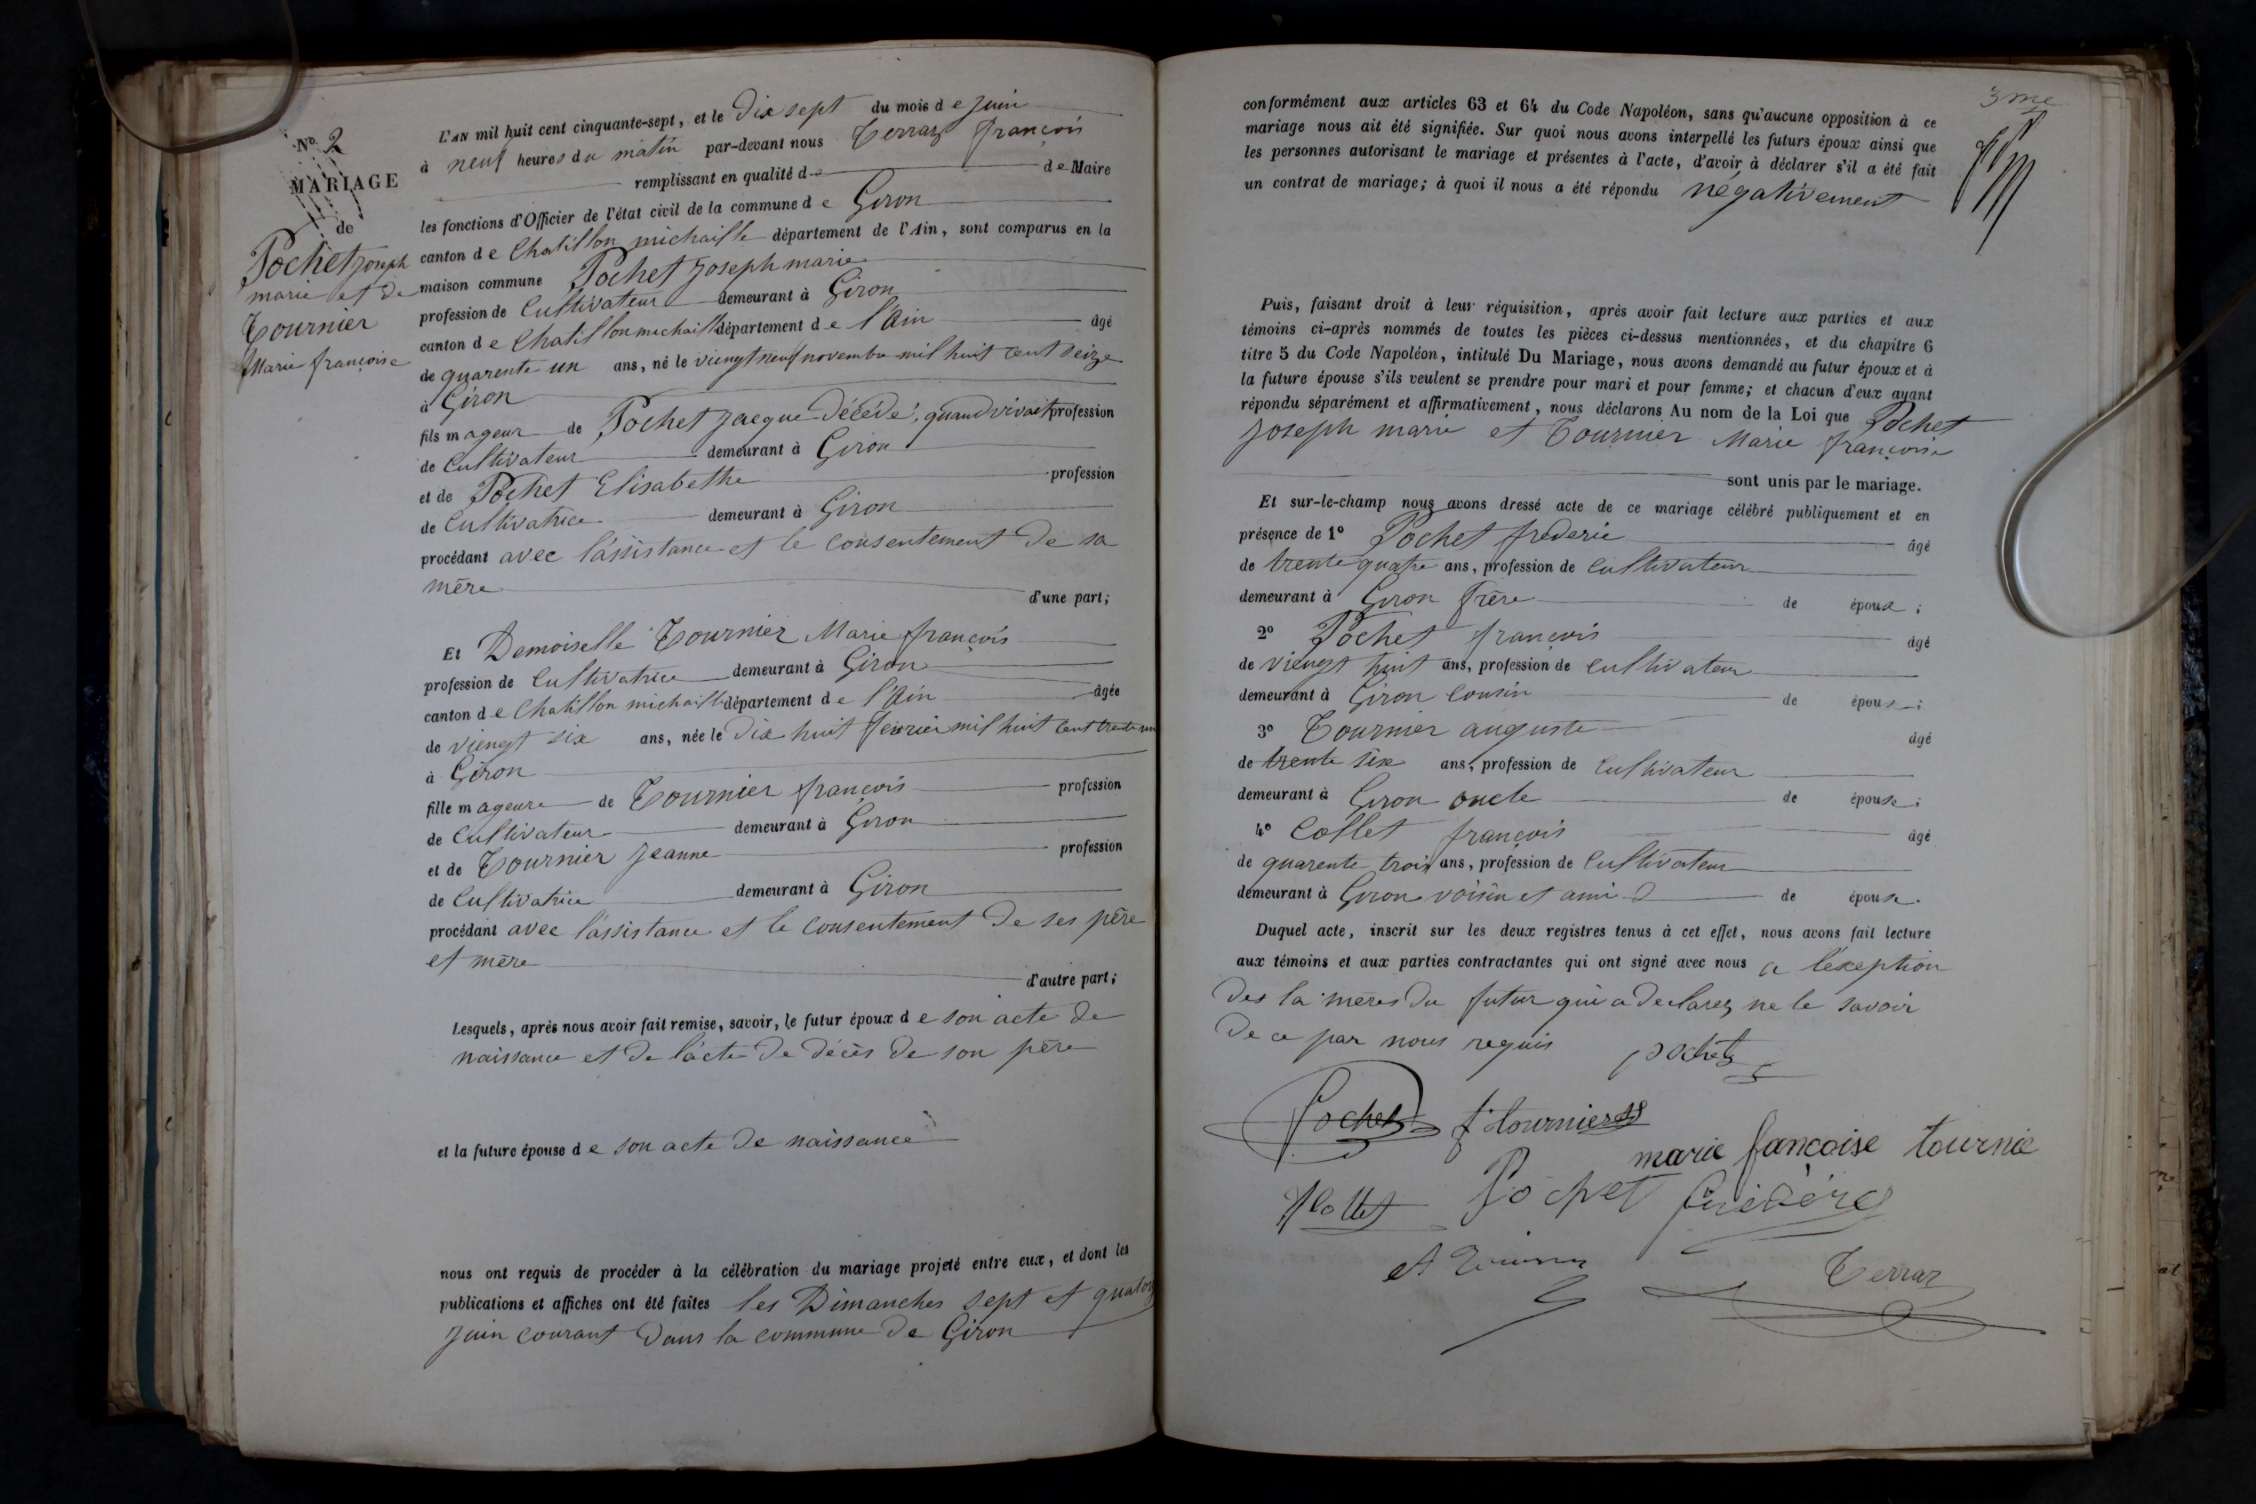 N.º 2
MARIAGE
de
Pochet joseph
marie et de
Tournier
Marie françoise
L'AN mil huit cent cinquante-sept, et le Dix sept du mois d e juin
à neuf heures du matin par-devant nous Terraz françois
remplissant en qualité d e de Maire
les fonctions d'Officier de l'état civil de la commune d e Giron
canton d e Chatillon michaille département de l'Ain, sont comparus en la
maison commune Pochet joseph marie
profession de Cultivateur demeurant à Giron
canton d e Chatillon michaille département d e l'Ain âgé
de quarente un ans, né le viengt neuf novembre mil huit cent seize
à Giron
fils mageur de Pochet jacque Décédé, quand vivait profession
de Cultivateur demeurant à Giron
et de Pochet Elisabethe profession
de Cultivatrice demeurant à Giron
procédant avec l'assistance et le consentement De sa
mère
d'une part;
Et Demoiselle Tournier Marie françois
profession de Cultivatrice demeurant à Giron
canton d e Chatillon michaille département d e l'Ain âgée
de viengt six ans, née le Dix huit fevrier mil huit cent trente un
à Giron
fille mageure de Tournier françois profession
de Cultivateur demeurant à Giron
et de Tournier jeanne profession
de Cultivatrice demeurant à Giron
procédant avec l'assistance et le consentement De ses père
et mère
d'autre part;
Lesquels, après nous avoir fait remise, savoir, le futur époux d e son acte de
naissance et de l'acte De décès de son père
et la future épouse d e son acte de naissance
nous ont requis de procéder à la célébration du mariage projeté entre eux, et dont les
publications et affiches ont été faites les Dimanches sept et quatorz
juin courant Dans la commune De Giron
3me
conformément aux articles 63 et 64 du Code Napoléon, sans qu'aucune opposition à ce
mariage nous ait été signifiée. Sur quoi nous avons interpellé les futurs époux ainsi que
les personnes autorisant le mariage et présentes à l'acte, d'avoir à déclarer s'il a été fait
un contrat de mariage; à quoi il nous a été répondu négativement
Puis, faisant droit à leur réquisition, après avoir fait lecture aux parties et aux
témoins ci-après nommés de toutes les pièces ci-dessus mentionnées, et du chapitre 6
titre 5 du Code Napoléon, intitulé Du Mariage, nous avons demandé au futur époux et à
la future épouse s'ils veulent se prendre pour mari et pour femme; et chacun d'eux ayant
répondu séparément et affirmativement, nous déclarons Au nom de la Loi que Pochet
joseph marie et Tournier Marie françoise
sont unis par le mariage.
Et sur-le-champ nous avons dressé acte de ce mariage célébré publiquement et en
présence de 1º Pochet frederic âgé
de trente quatre ans, profession de Cultivateur
demeurant à Giron frère de époux ;
2º Pochet françois âgé
de viengt huit ans, profession de Cultivateur
demeurant à Giron Cousin de époux ;
3º Tournier auguste âgé
de trente six ans, profession de Cultivateur
demeurant à Giron oncle de épouse ;
4º Collet françois âgé
de quarente trois ans, profession de Cultivateur
demeurant à Giron voisin et ami D de épouse.
Duquel acte, inscrit sur les deux registres tenus à cet effet, nous avons fait lecture
aux témoins et aux parties contractantes qui ont signé avec nous a l'exeption
Des la mères Du futur qui a declarez ne le savoir
De ce par nous requis pochet
Pochet f tournier
marie fancoise tournie
Pochet
Terraz